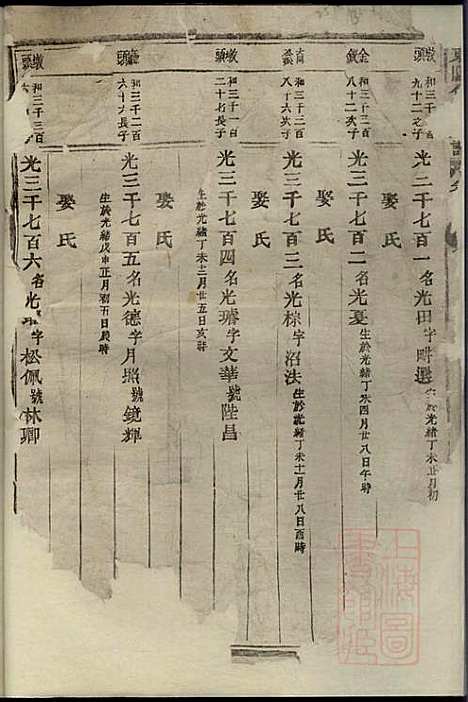 墩頭
和三千
九十二之子
光三千七百一名光田字畊選
生於光緒丁未正月初
娶氏
金釵
和三千三百
八十二次子
光三千七百二名光夏
生於光緒丁未四月廿八日午時
娶氏
和三千三百
八十六次子
光三千七百三名光棕字沼法
生於光緒丁未十一月廿八日酉時
娶氏
墩頭
和三千一百
二十七長子
光三千七百四名光璿字文華號陛昌
生於光緒丁未十二月廿五日亥時
娶氏
頭
和三千二百
六十六長子
光三千七百五名光德字月照號鏡輝
生於光緒戊申正月初五日辰時
娶氏
墩頭
和三千三百
光三千七百六名光 字松佩號林卿
上海圖書館藏